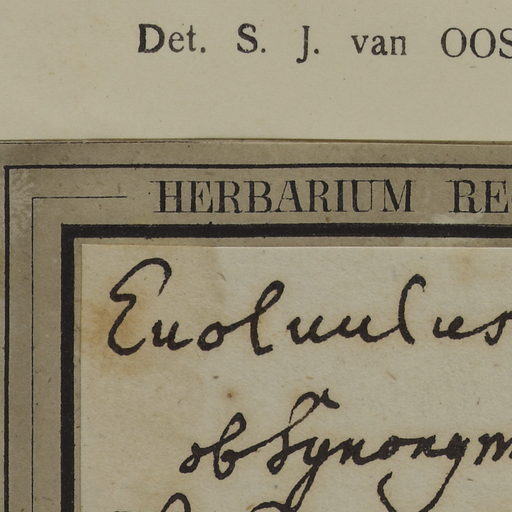 Det. S. J. van OOS
HERBARIUM RE
Evolvulus
ob synonym